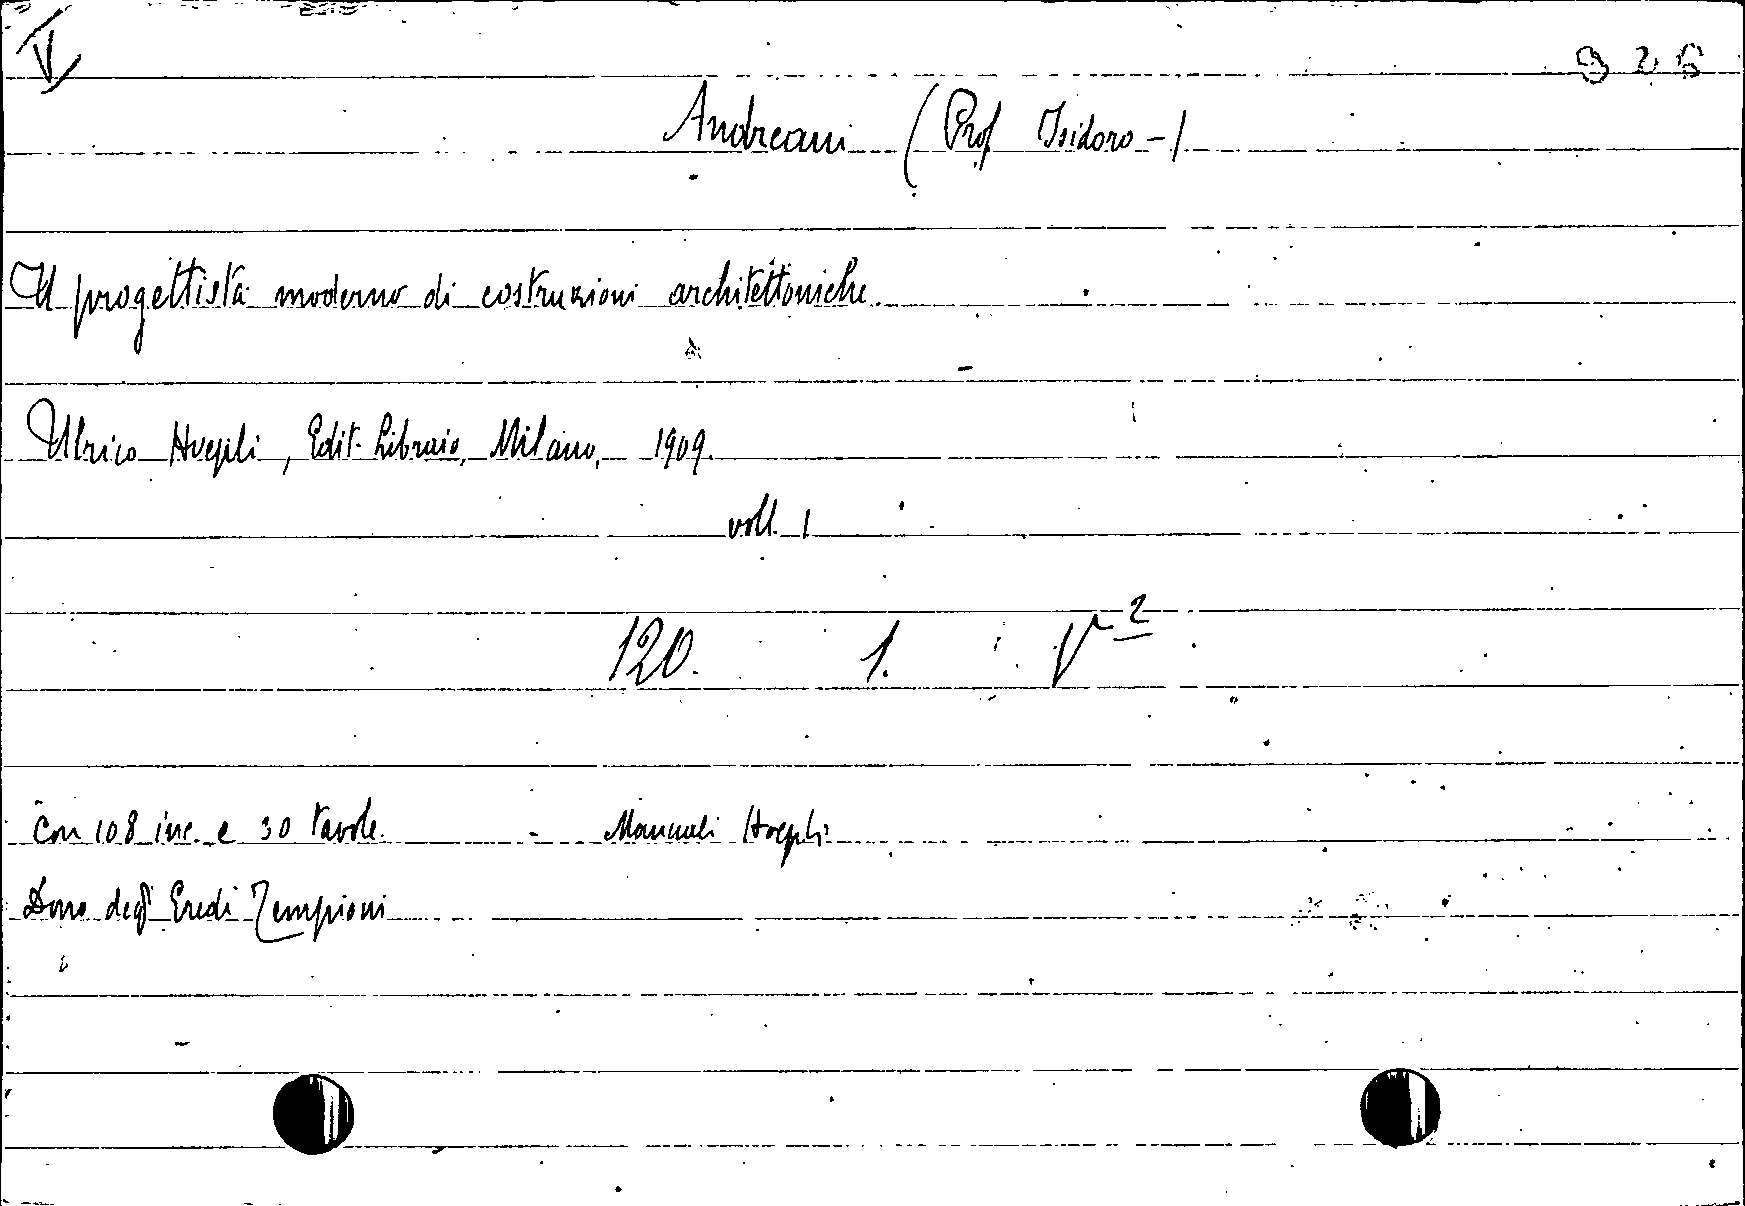 V 926
Andreani (Prof Isidoro -)
Il progettista moderno di costruzioni architettoniche.
Ulrico Hoepli, Edit. Libraio, Milano, 1909.
voll. 1
120. 1. V 2
Con 108 inc. e 30 tavole. - Manuali Hoepli
Dono degl' Eredi Zempioni